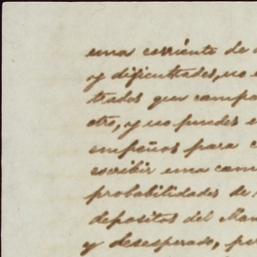 una corriente de
y dificultades, no e
trados que campa
otro, y no puedes e
empeños para
escribir una cam
probabilidades de
depositos del Man
y desesperado, por